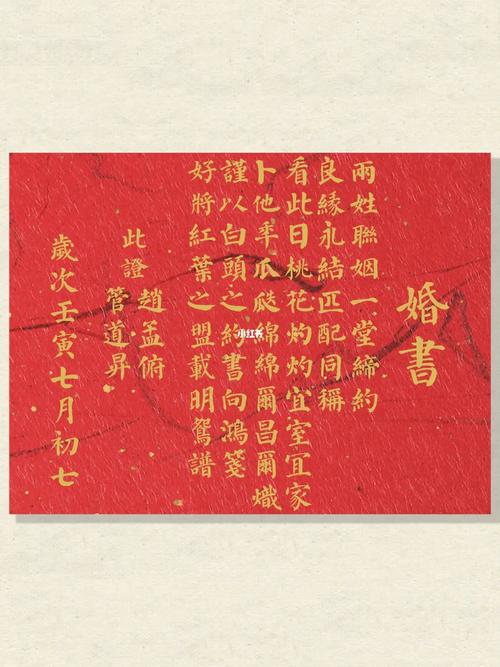 婚書
兩姓聯姻一堂締約
良緣永結匹配同稱
看此日桃花灼灼宜室宜家
卜他年瓜瓞綿綿爾昌爾熾
謹以白頭之約書向鴻箋
好將紅葉之盟載明鴛譜
此證
趙孟俯
管道昇
歲次壬寅七月初七
小红书